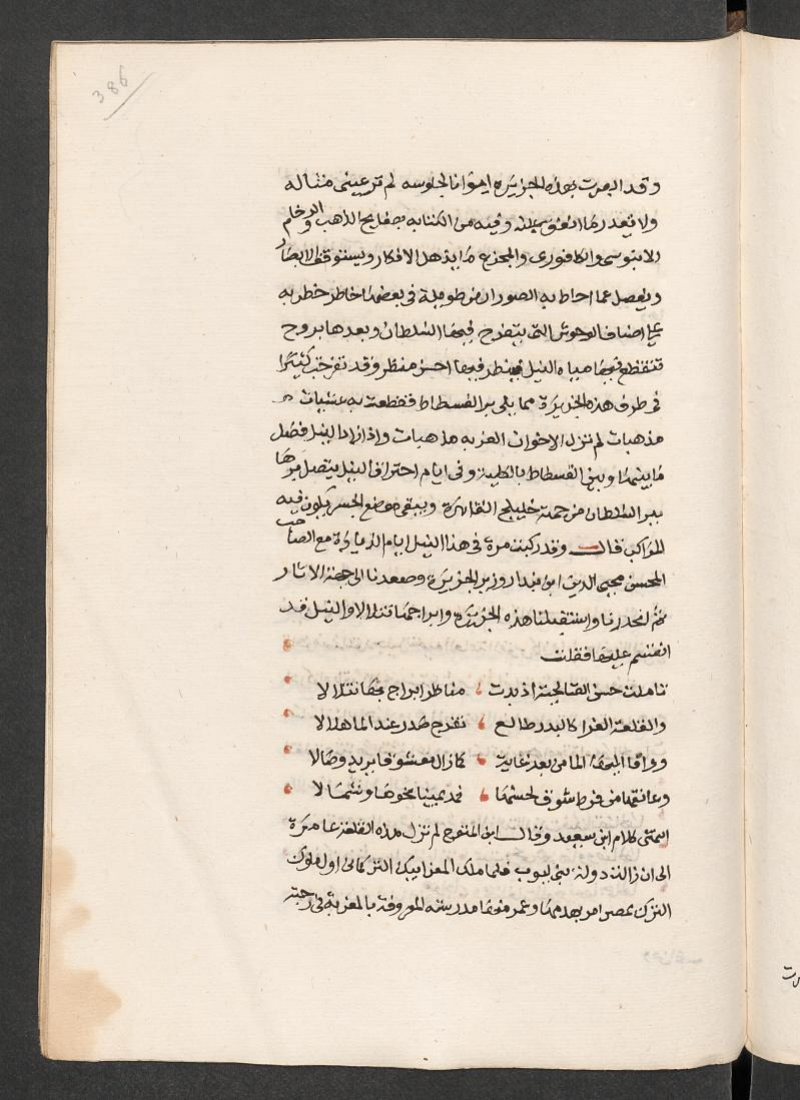 386
وقد ابصرت بهذه الجزيره ايوانا لجلوسه لم تر عينى مثاله
ولا يقدر ما انفق عليه وفيه من الكتابه صفايح الذهب والرخام
الابنوسى والكافورى والمجزع ما يذهل الافكار ويستوقف الابصار
ويفصل عما احاط به الصور ارض طويلة فى بعضها خاطر خطر به
على اصناف الوحوش التى يتفرج فيها السلطان وبعدها مروج
تنقطع فيها مياه النيل فينظر فيها احسن منظر وقد تفرجت كثيرا
فى طرف هذه الجزيرة مما يلى بر الفسطاط فقطعت به عشيات
مذهبات لم تزل لاخوان الغربه مذهبات واذا زاد النيل فصل
ما بينها وبين الفسطاط بالكلية وفى ايام احتراق النيل يتصل برها
ببر السلطان من جهة خليج القاهرة ويبقى موضع الجسر يكون فيه
المراكب قال وقد ركبت مرة فى هذا النيل ايام الزيادة مع الصاحب
المحسن محيى الدين ابن بندار وزير الجزيرة وصعدنا الى جهة الاثار
ثم انحدرنا واستقبلنا هذه الجزيرة وابراجها تتلالا والنيل قد
انقسم عليها فقلت
تامل لحسن الصالحية اذ بدت مناظر ابراج بها تتلالا
والقلعة الغرا كالبدر طالع تفرج صدر عند الما هلالا
ووافا اليها الما من بعد غاية كما زال معشوقا يريد وصالا
وعانقها من فرط شوق لحسنها فمد يمينا نحوها وشمالا
انتهى كلام ابن سعيد وقال ابن المتوج لم تزل هذه القلعة عامرة
الى ان زالت دولة بنى ايوب فلما ملك المعز ايبك التركمانى اول ملوك
الترك بمصر امر بهدمها وعمر منها مدرسته المعروفة بالمعزية فى رحبة